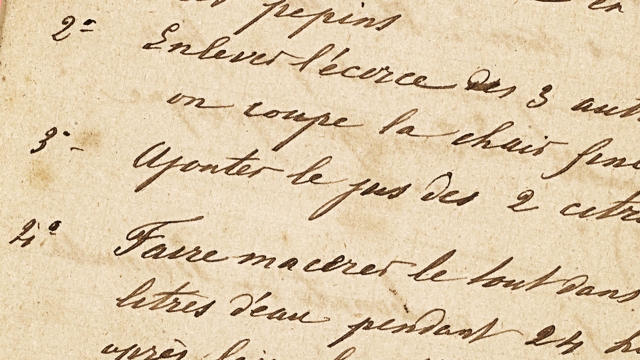 pepins
2° Enlever l'écorce des 3
on coupe la chair
3° - Ajouter le jus des 2
4° Faire macerer le tout dans
litres d'eau pendant 24
après